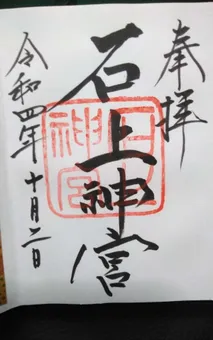 奉拝
石上神宮
令和四年十月二日